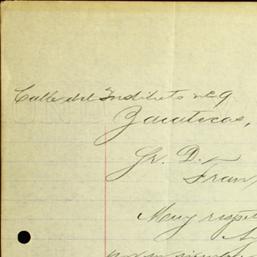 Calle del Instituto no 9
Zacatecas,
Sr. D.
Fran
Muy respe